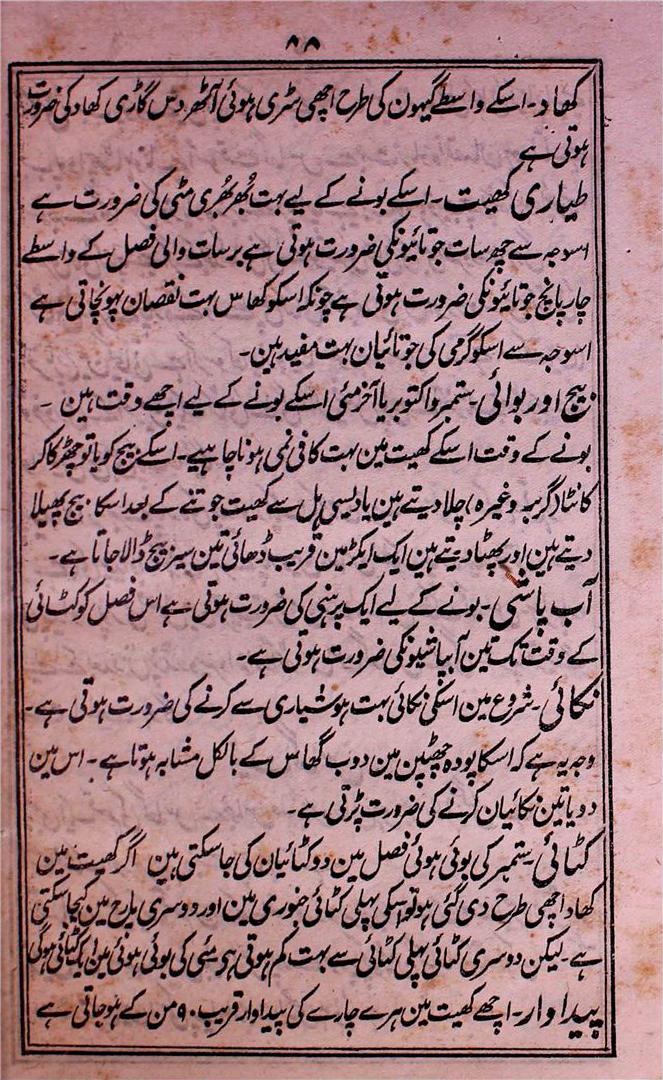 ۸۸
کھاد۔ اسکے واسطے گیہون کی طرح اچھی سڑی ہوئی آٹھ دس گاڑی کھاد کی ضرورت
ہوتی ہے
طیاری کھیت۔ اسکے بونے کے لیے بہت بُھربُھری مٹی کی ضرورت ہے
اسوجہ سے چھ سات جوتائیونکی ضرورت ہوتی ہے برسات والی فصل کے واسطے
چار پانچ جوتائیونکی ضرورت ہوتی ہے چونکہ اسکو گھاس بہت نقصان پہونچاتی ہے
اسوجہ سے اسکو گرمی کی جوتائیان بہت مفید ہین۔
بیج اور بوائی۔ ستمبر و اکتوبر یا آخر مئی اسکے بونے کے لیے اچھے وقت ہین۔
بونے کے وقت اسکے کھیت مین بہت کافی نمی ہونا چاہیے۔ اسکے بیج کو یا تو چھڑکا کر
کانٹا (گربر وغیرہ) چلا دیتے ہین یا دیسی ہل سے کھیت جوتنے کے بعد اسکا بیج پھیلا
دیتے ہین اور پھٹا دیتے ہین ایک ایکڑ مین قریب ڈھائی تین سیر بیج ڈالا جاتا ہے۔
آب پاشی۔ بونے کے لیے ایک پرینی کی ضرورت ہوتی ہے اس فصل کو کٹائی
کے وقت تک تین آبپاشیونکی ضرورت ہوتی ہے۔
نکائی۔ شروع مین اسکی نکائی بہت ہوشیاری سے کرنے کی ضرورت ہوتی ہے۔
وجہ یہ ہے کہ اسکا پودہ چھٹپن مین دوب گھاس کے بالکل مشابہ ہوتا ہے۔ اس مین
دو یا تین نکائیان کرنے کی ضرورت پڑتی ہے۔
کٹائی ستمبر کی بوئی ہوئی فصل مین دو کٹائیان کی جا سکتی ہین اگر کھیت مین
کھاد اچھی طرح دی گئی ہو تو اسکی پہلی کٹائی جنوری مین اور دوسری مارچ مین کیجا سکتی
ہے۔ لیکن دوسری کٹائی پہلی کٹائی سے بہت کم ہوتی ہی مئی کی بوئی ہوئی مین ایک کٹائی ہوگی
پیداوار۔ اچھے کھیت مین ہرے چارے کی پیداوار قریب ۹۰ من کے ہو جاتی ہے